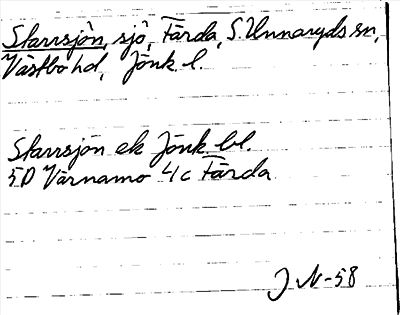 Starrsjön, sjö, Färda, S. Unnaryds sn,
Västbo hd, Jönk. l.
Starrsjön ek Jönk. bl.
5D Värnamo 4c Färda
J N-58